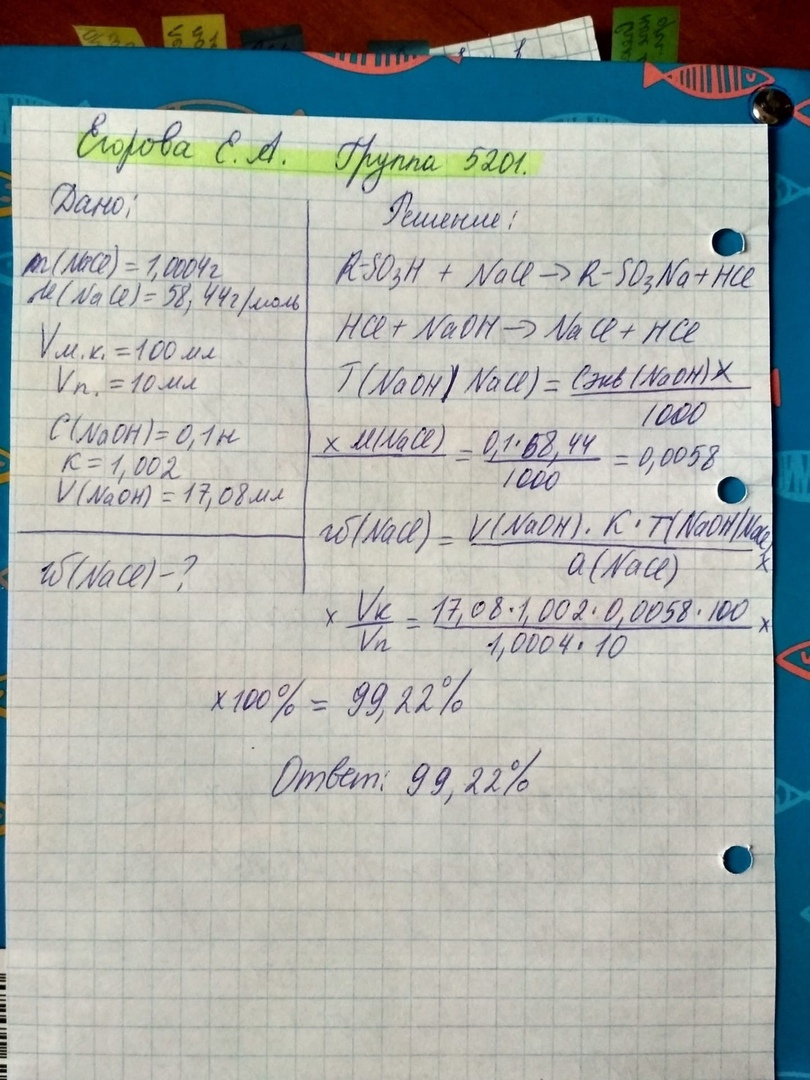 Егорова Е. А. Группа 5201.
Дано:
m(NaCl) = 1,0004г
M(NaCl) = 58,44г/моль
Vм.к. = 100 мл
Vп. = 10 мл
C(NaOH) = 0,1н
K = 1,002
V(NaOH) = 17,08 мл
ѡ(NaCl) - ?
Решение:
R-SO₃H + NaCl → R-SO₃Na + HCl
HCl + NaOH → NaCl + HCl
T(NaOH/NaCl) = Cэкв(NaOH) x / 1000
x M(NaCl) = 0,1 · 58,44 / 1000 = 0,0058
ѡ(NaCl) = V(NaOH) · K · T(NaOH/NaCl) / a(NaCl) x
x Vк / Vп = 17,08 · 1,002 · 0,0058 · 100 / 1,0004 · 10 x
x 100% = 99,22%
Ответ: 99,22%